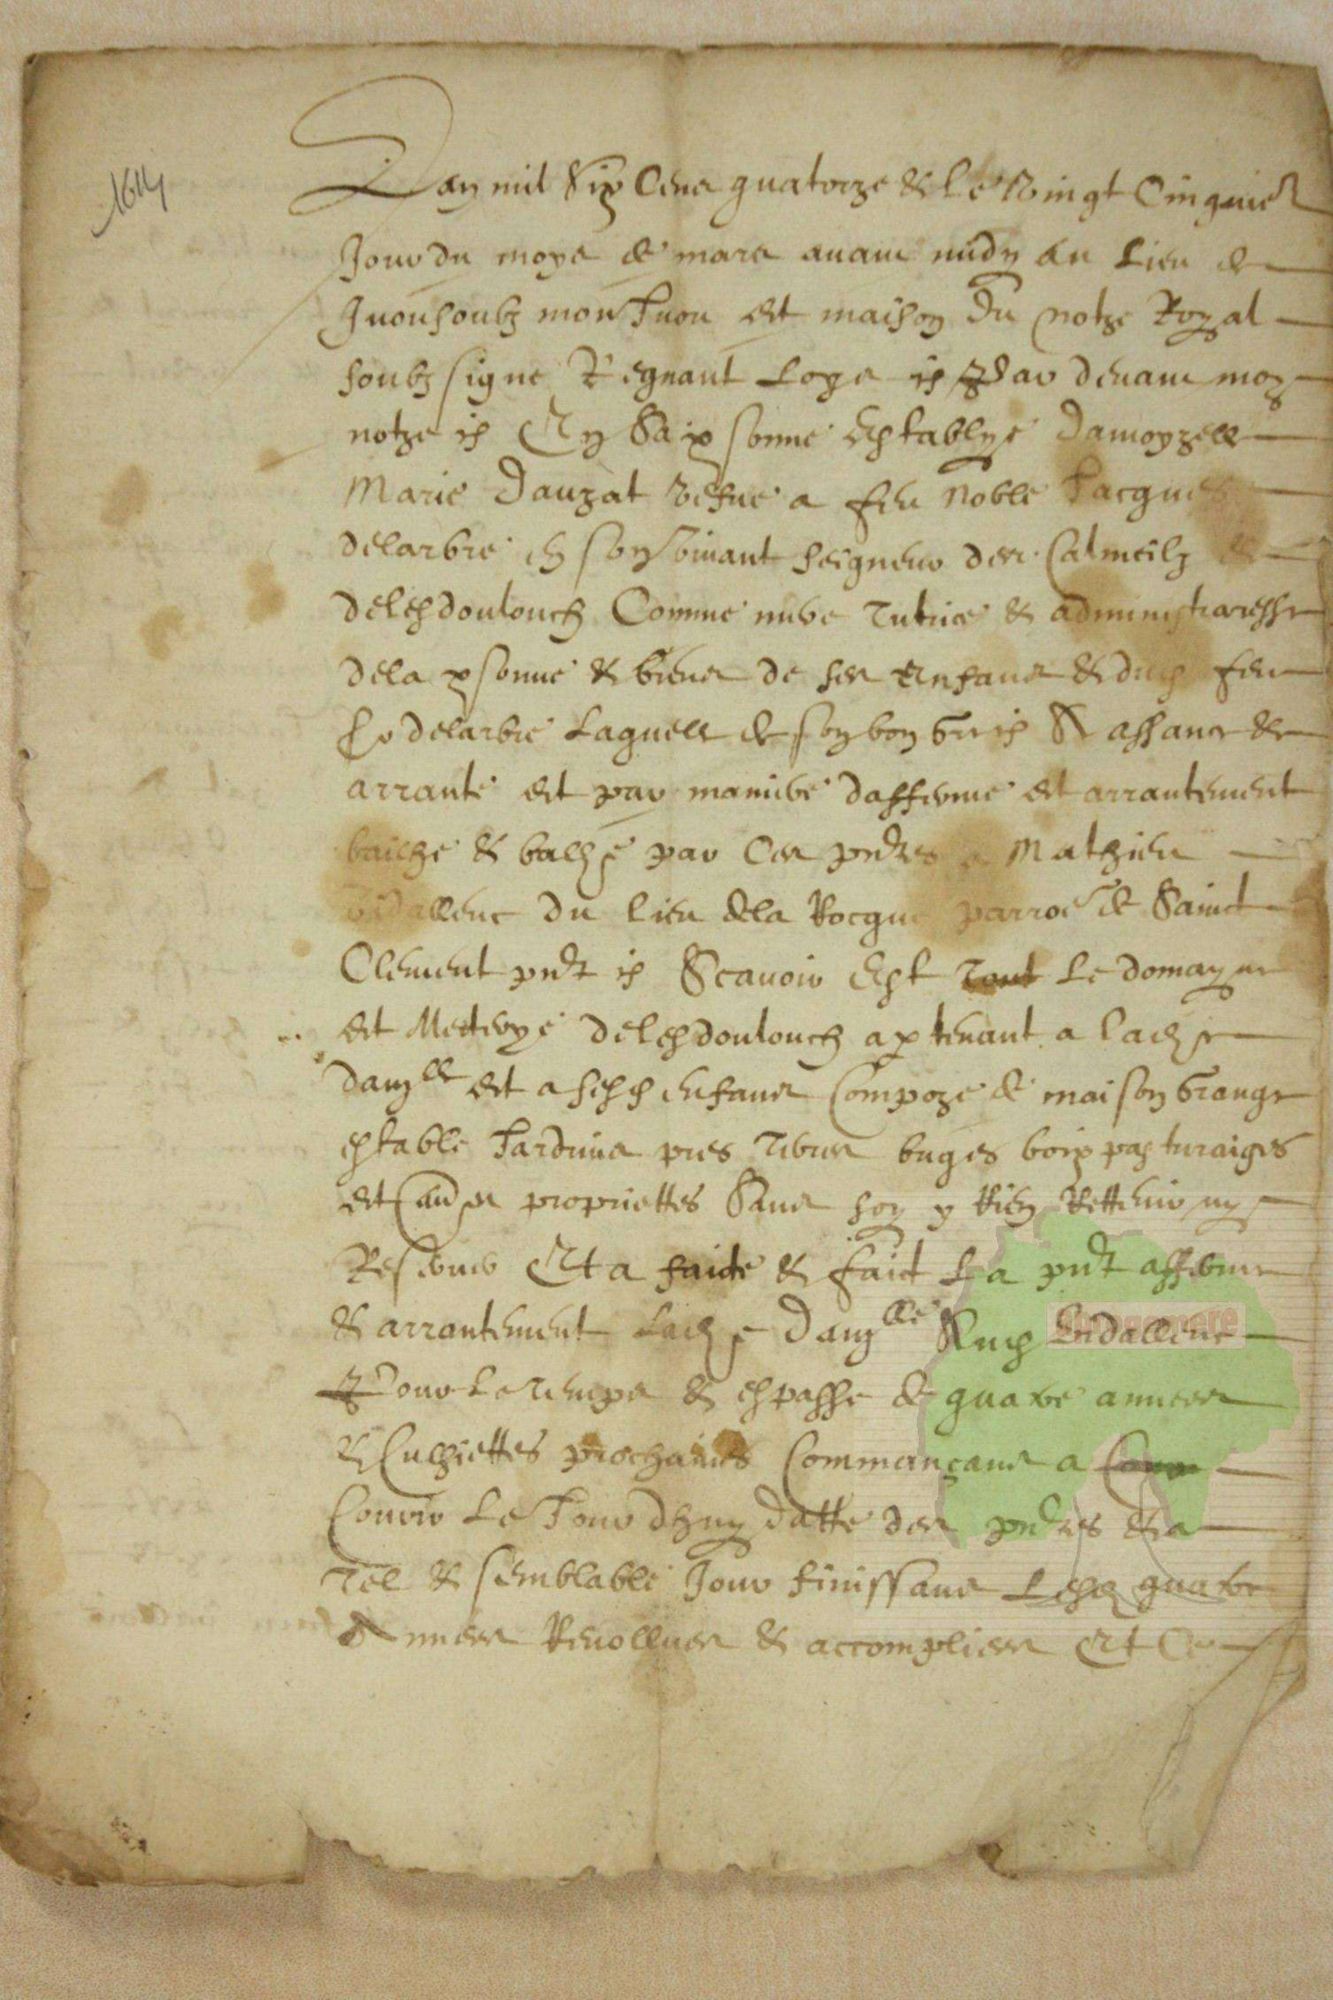 1614
Lan mil six cens quatorze & le vingt cinquie
Jour du moys de mars avant midy au lieu de
Juou soubz monJuou et maison du notre Royal
soubzsigne Regnant Loys & par devant moy
notre & En sa psonne establye damoyzelle
Marie dauzat vefve a feu noble Jacques
delarbre en son vivant seigneur des Calmeilz &
delesdoulouch Comme mere Tutrice & administraresse
dela psonne & biens de ses enfans & dud feu
sr delarbre Laquelle de son bon gre & A assance &
arrante et par maniere dafferme et arrantement
bailhe & balhe par ces pntes a Mathieu
Vidallenc du lieu dela Rocque parroe de Sainct
Clement pnt & Scavoir Est Tout Le domayne
et Metterye delesdoulouch aptenant a ladite
damlle et a sesd enfans Compoze de maison grange
estable Jardins pres Terres buges boix pasturaiges
et aues propriettes Sans soy y Rien Rettenir ny
Reserver Et a faicte & faict La pnt afferme
& arrantement Ladite damlle Aud Vidallenc
Pour Le Temps & espasse de quatre annees
& Culhiettes prochaines Commançans a
Courir Le Jour dhuy datte des pntes & a
Tel & semblable Jour finissans Lesd quatre
Annees Revollues & accomplies Et Ce